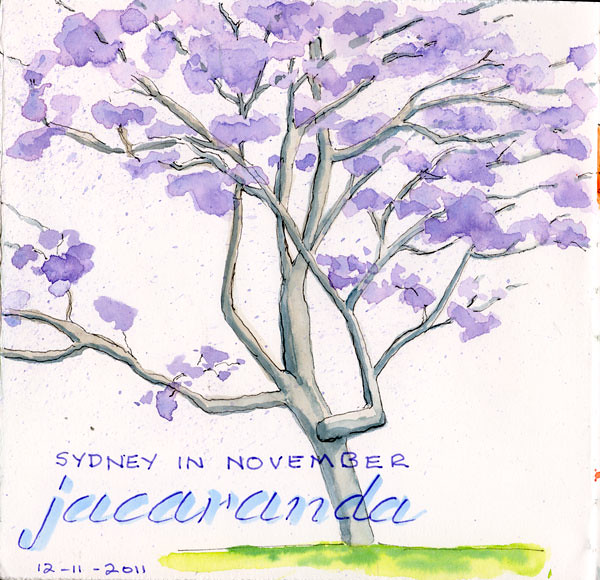 SYDNEY IN NOVEMBER
jacaranda
12-11-2011